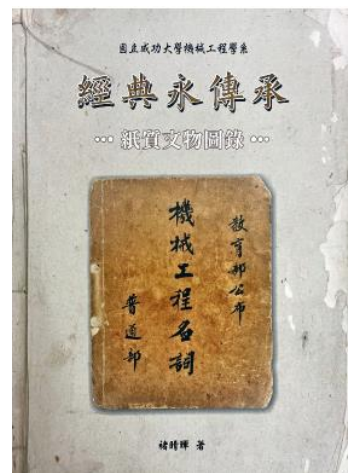 國立成功大學機械工程學系
經典永傳承
… 紙質文物圖錄 …
教育部公布
機械工程名詞
普通部
褚晴暉 著